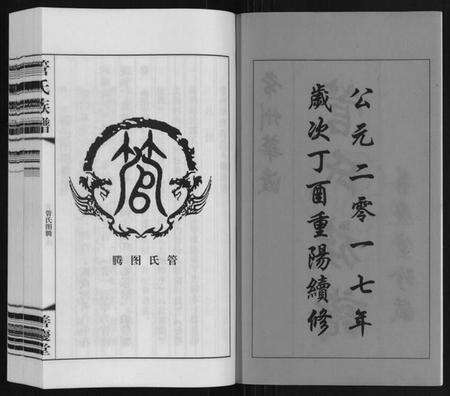 公元二零一七年
歲次丁酉重陽續修
管
管氏图腾
管氏族譜
管氏图腾
善慶堂